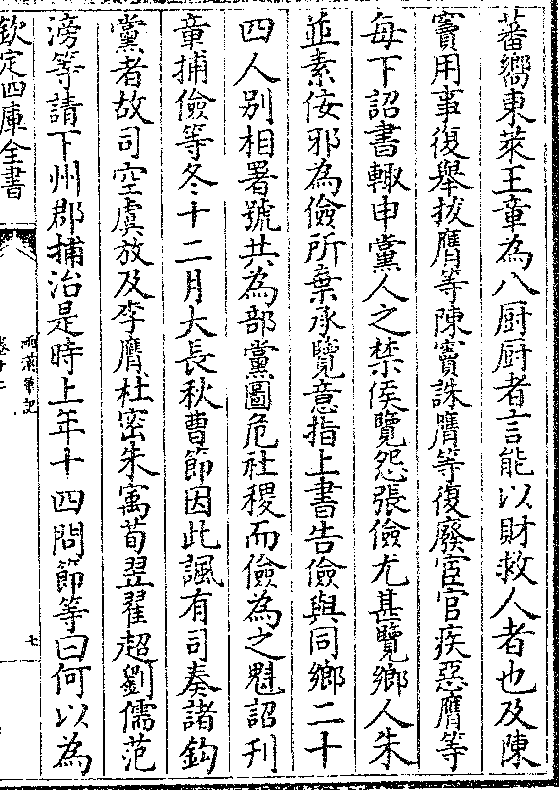 蕃嚮東萊王章為八厨厨者言能以財救人者也及陳
竇用事復舉拔膺等陳竇誅膺等復廢宦官疾惡膺等
每下詔書輒申黨人之禁侯覽怨張儉尤甚覽鄉人朱
並素佞邪為儉所棄承覽意指上書告儉與同鄉二十
四人别相署號共為部黨圖危社稷而儉為之魁詔刊
章捕儉等冬十二月大長秋曹節因此諷有司奏諸鈎
黨者故司空虞放及李膺杜密朱㝢荀翌翟超劉儒范
滂等請下州郡捕治是時上年十四問節等曰何以為
欽定四庫全書
兩漢筆記
七